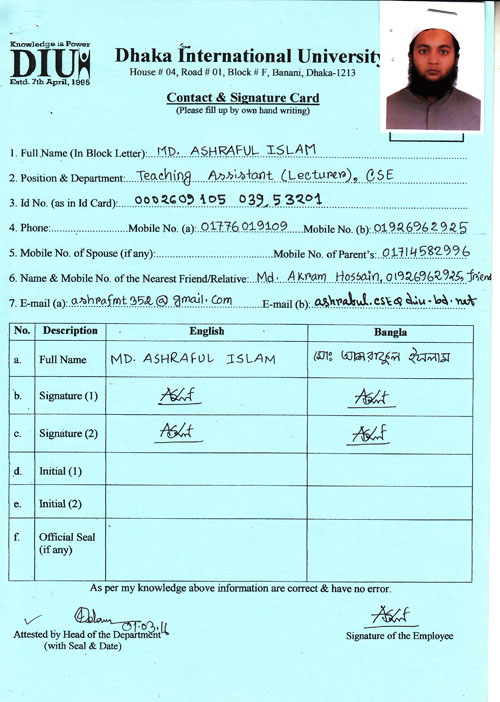 Knowledge is Power
DIU
Estd. 7th April, 1995
Dhaka International University
House # 04, Road # 01, Block # F, Banani, Dhaka-1213
Contact & Signature Card
(Please fill up by own hand writing)
1. Full Name (In Block Letter): MD. ASHRAFUL ISLAM
2. Position & Department: Teaching Assistant (Lecturer), CSE
3. Id No. (as in Id Card): 0002609105 039,53201
4. Phone: Mobile No. (a): 01776019109 Mobile No. (b): 01926962925
5. Mobile No. of Spouse (if any): Mobile No. of Parent's: 01714582996
6. Name & Mobile No. of the Nearest Friend/Relative: Md. Akram Hossain, 01926962925, friend
7. E-mail (a): ashrafmt352@gmail.com E-mail (b): ashraful.cse@diu-bd.net
No. Description English Bangla
a. Full Name MD. ASHRAFUL ISLAM মোঃ আশরাফুল ইসলাম
b. Signature (1)
c. Signature (2)
d. Initial (1)
e. Initial (2)
f. Official Seal
(if any)
As per my knowledge above information are correct & have no error.
Attested by Head of the Department
(with Seal & Date)
Signature of the Employee